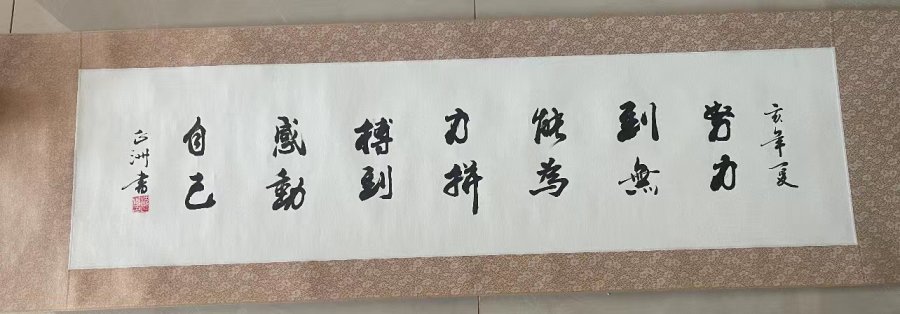 亥年夏
努力
到無
能為
力拼
搏到
感動
自己
正洲書